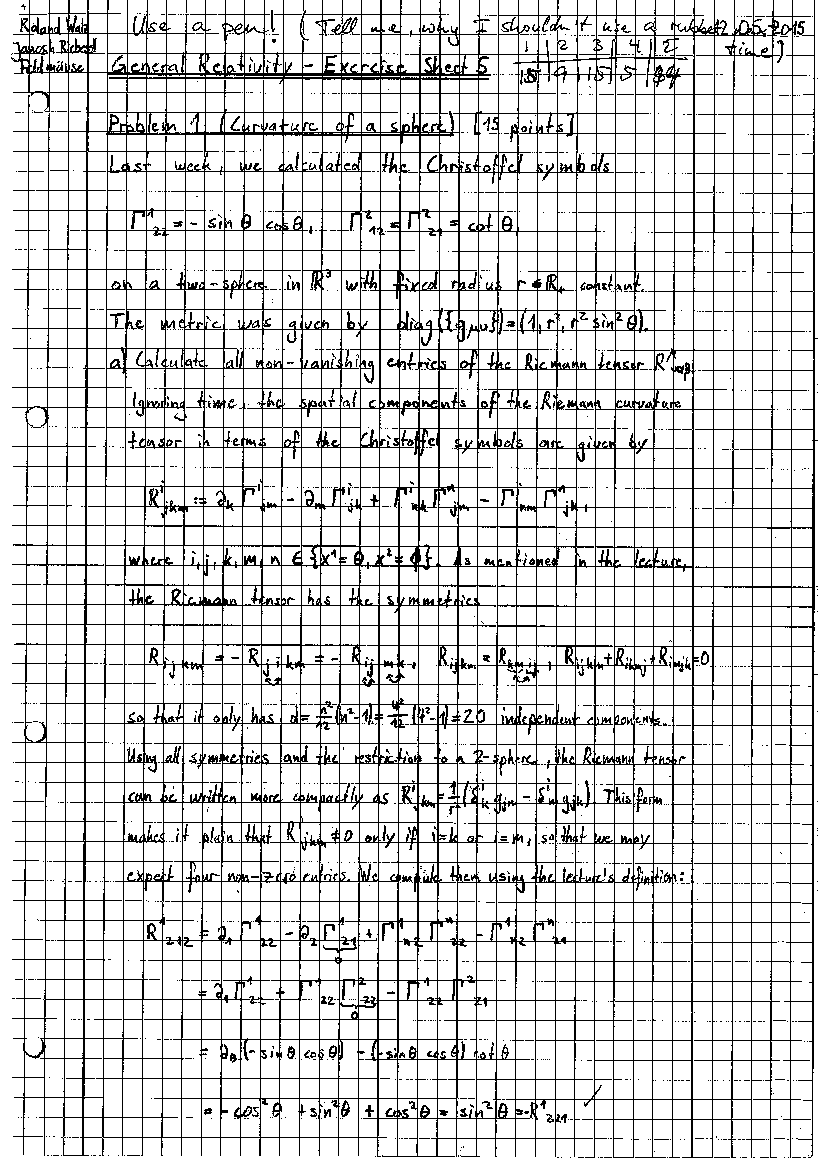 Roland Waiz Use a pen! (Tell me, why I shouldn't use a rubber 2.05.2015
Janosh Riebesell time)
Feldmäuse General Relativity – Exercise Sheet 5
1 2 3 4 Σ
15 9 15 5 44
Problem 1 (Curvature of a sphere) [15 points]
Last week, we calculated the Christoffel symbols
Γ¹₂₂ = - sin θ cos θ, Γ²₁₂ = Γ²₂₁ = cot θ,
on a two-sphere in ℝ³ with fixed radius r ∈ ℝ₊ constant.
The metric was given by diag({g_μν}) = (1, r², r² sin² θ).
a) Calculate all non-vanishing entries of the Riemann tensor
Ignoring time, the spatial components of the Riemann curvature
tensor in terms of the Christoffel symbols are given by
R^i_jkm := ∂_k Γ^i_jm - ∂_m Γ^i_jk + Γ^i_nk Γ^n_jm - Γ^i_nm Γ^n_jk,
where i, j, k, m, n ∈ {x¹ = θ, x² = ϕ}. As mentioned in the lecture,
the Riemann tensor has the symmetries
R_ijkm = - R_jikm = - R_ijmk, R_ijkm = R_kmij, R_ijkm + R_ikmj + R_imjk = 0
so that it only has d = n²/12 (n²-1) = 4²/12 (4²-1) = 20 independent components.
Using all symmetries and the restriction to a 2-sphere, the Riemann tensor
can be written more compactly as R^i_jkm = 1/r² (δ^i_k g_jm - δ^i_m g_jk). This form
makes it plain that R^i_jkm ≠ 0 only if i=k or i=m, so that we may
expect four non-zero entries. We compute them using the lecture's definition:
R¹₂₁₂ = ∂₁ Γ¹₂₂ - ∂₂ Γ¹₂₁ + Γ¹_n₁ Γ^n₂₂ - Γ¹_n₂ Γ^n₂₁
0
= ∂₁ Γ¹₂₂ + Γ¹₂₂ Γ²₂₂ - Γ¹₂₂ Γ²₂₁
0
= ∂_θ (- sin θ cos θ) - (- sin θ cos θ) cot θ
= - cos² θ + sin² θ + cos² θ = sin² θ = -R¹₂₂₁ ✓